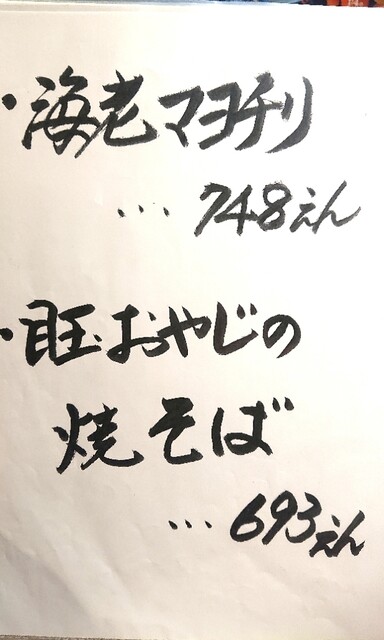 ・海老マヨチリ
… 748えん
・目玉おやじの
焼そば
… 693えん